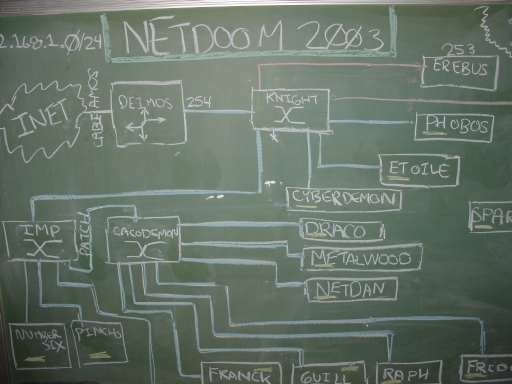 2.168.1.0/24
NETDOOM 2003
253
EREBUS
INET
DEIMOS
254
KNIGHT
PHOBOS
ETOILE
CYBERDEMON
IMP
PATCH
CACODEMON
DRACO
METALWOOD
NETDAN
NUMBER
SIX
PINCHO
FRANCK
GUILL
RAPH